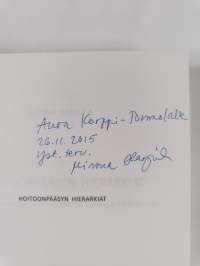 Aura Korppi-Tommolalle
26.11.2015
yst. terv.
HOITOONPÄÄSYN HIERARKIAT